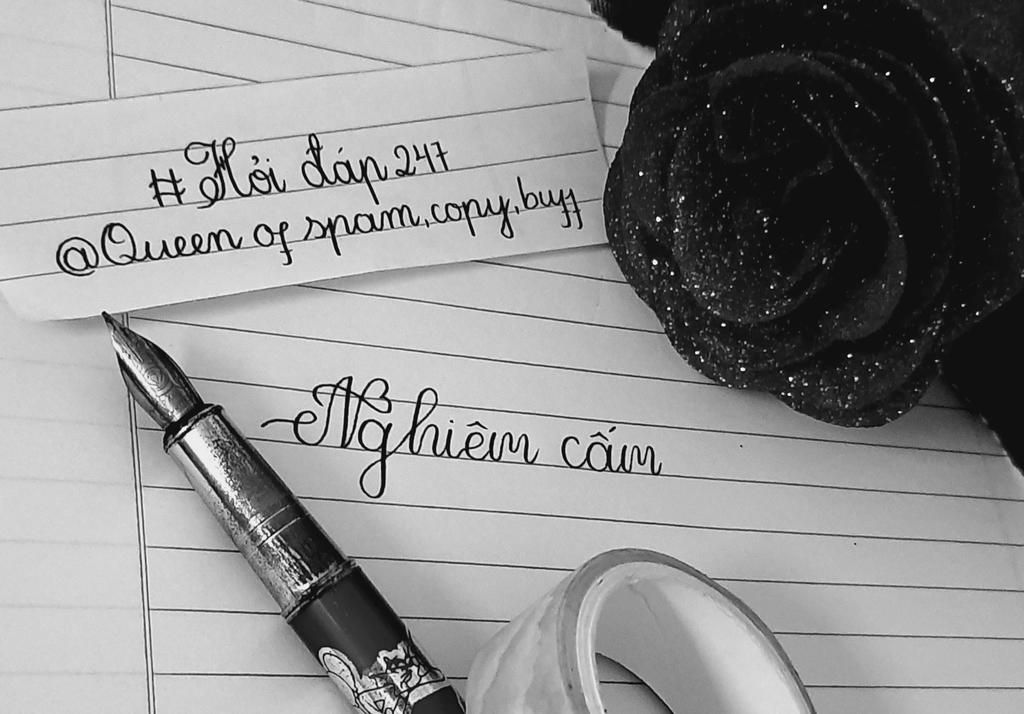 #Hỏi đáp 247
@Queen of spam,copy,buff
Nghiêm cấm